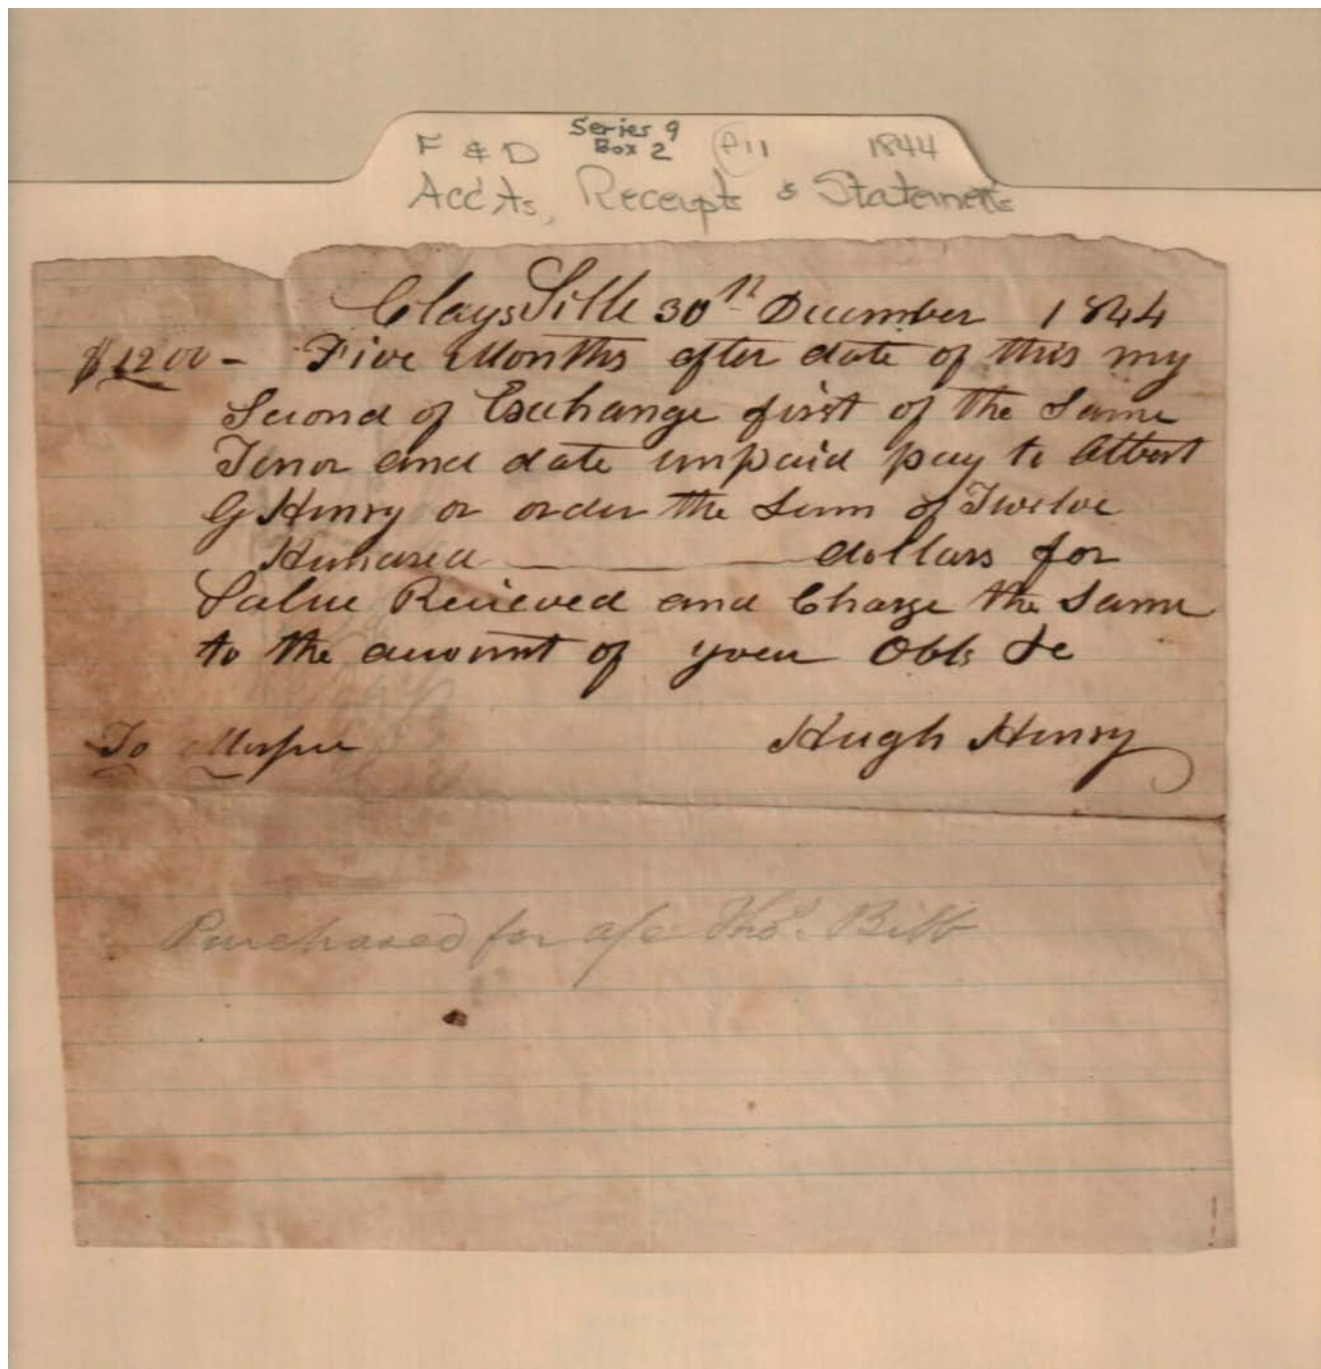 F & D Series 9 Box 2 f11 1844
Acc'ts, Receipts & Statements
ClaysVille 30th December 1844
$1200 - Five Months after date of this my
Second of Exchange first of the Same
Tenor and date unpaid pay to Albert
G Henry or order the Sum of Twelve
Hundred dollars for
Value Recieved and Charge the Same
to the amount of your Obt &c
To Hugh Henry
Purchased for a/c Thos. Bibb